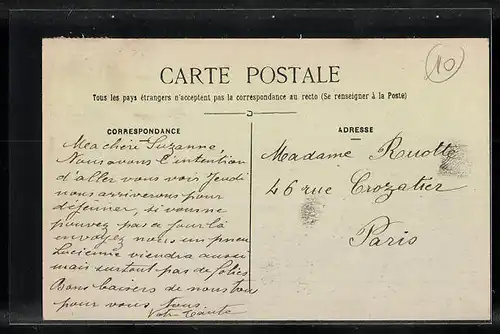 10
CARTE POSTALE
Tous les pays étrangers n'acceptent pas la correspondance au recto (Se renseigner à la Poste)
CORRESPONDANCE
Ma chère Suzanne,
Nous avons l'intention
d'aller vous voir Jeudi
nous arriverons pour
déjeuner, si vous ne
pouvez pas ce jour là
envoyez nous un pneu
Lucienne viendra aussi
mais surtout pas de folies
Bons baisers de nous tous
pour vous tous.
Votre tante
ADRESSE
Madame Ruotte
46 rue Crozatier
Paris